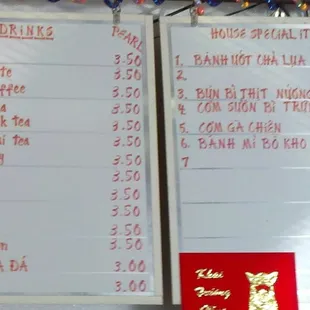 DRINKS PEARL
3.50
te 3.50
ffee 3.50
a 3.50
k tea 3.50
i tea 3.50
y 3.50
3.50
3.50
3.50
3.50
n 3.50
A ĐÁ 3.00
3.00
HOUSE SPECIAL IT
1. BÁNH ƯỚT CHẢ LỤA
2.
3. BÚN BÌ THỊT NƯỚNG
4 CƠM SƯỜN BÌ TRỨ
5. CƠM GÀ CHIÊN
6. BANH MÌ BÒ KHO
7
Khai
Trương